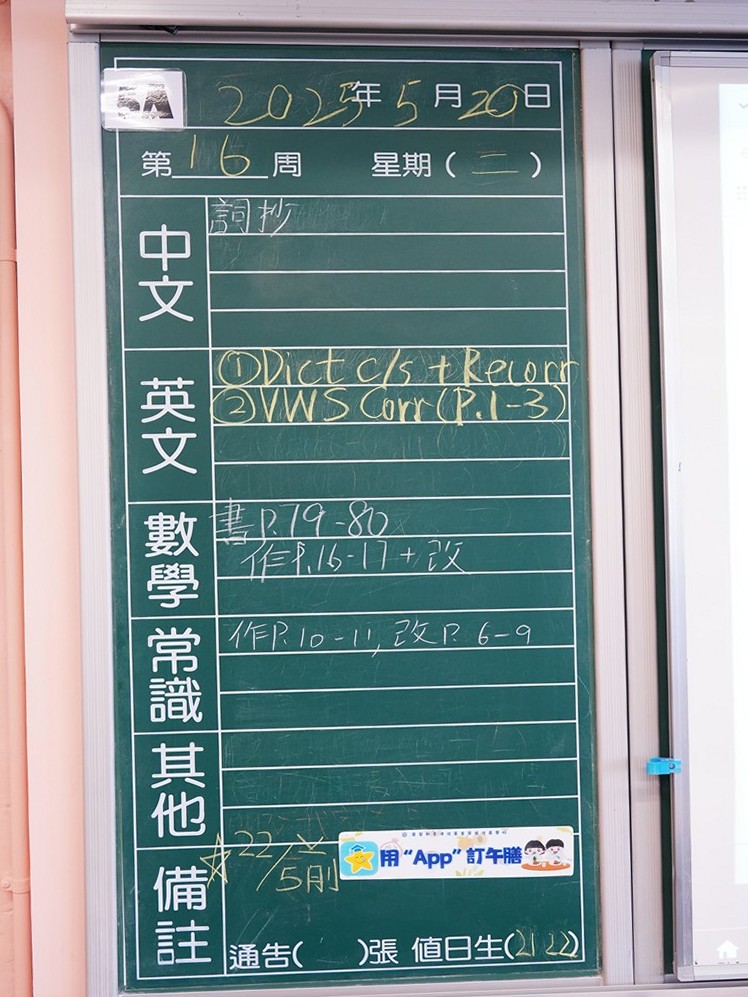 5A
2025年5月20日
第16周 星期(二)
中文
詞抄
英文
①Dict c/s + Recorr
②VWS Corr(P.1-3)
數學
書P.79-80
作P.16-17+改
常識
作P.10-11,改P.6-9
其他
備註
☆22/5前
用“App”訂午膳
通告( )張 值日生(21 22)